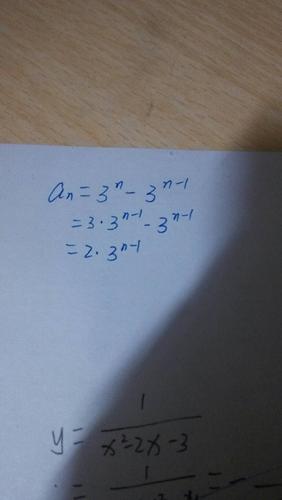 aₙ = 3ⁿ - 3ⁿ⁻¹
= 3 · 3ⁿ⁻¹ - 3ⁿ⁻¹
= 2 · 3ⁿ⁻¹
y = 1/(x² - 2x - 3)